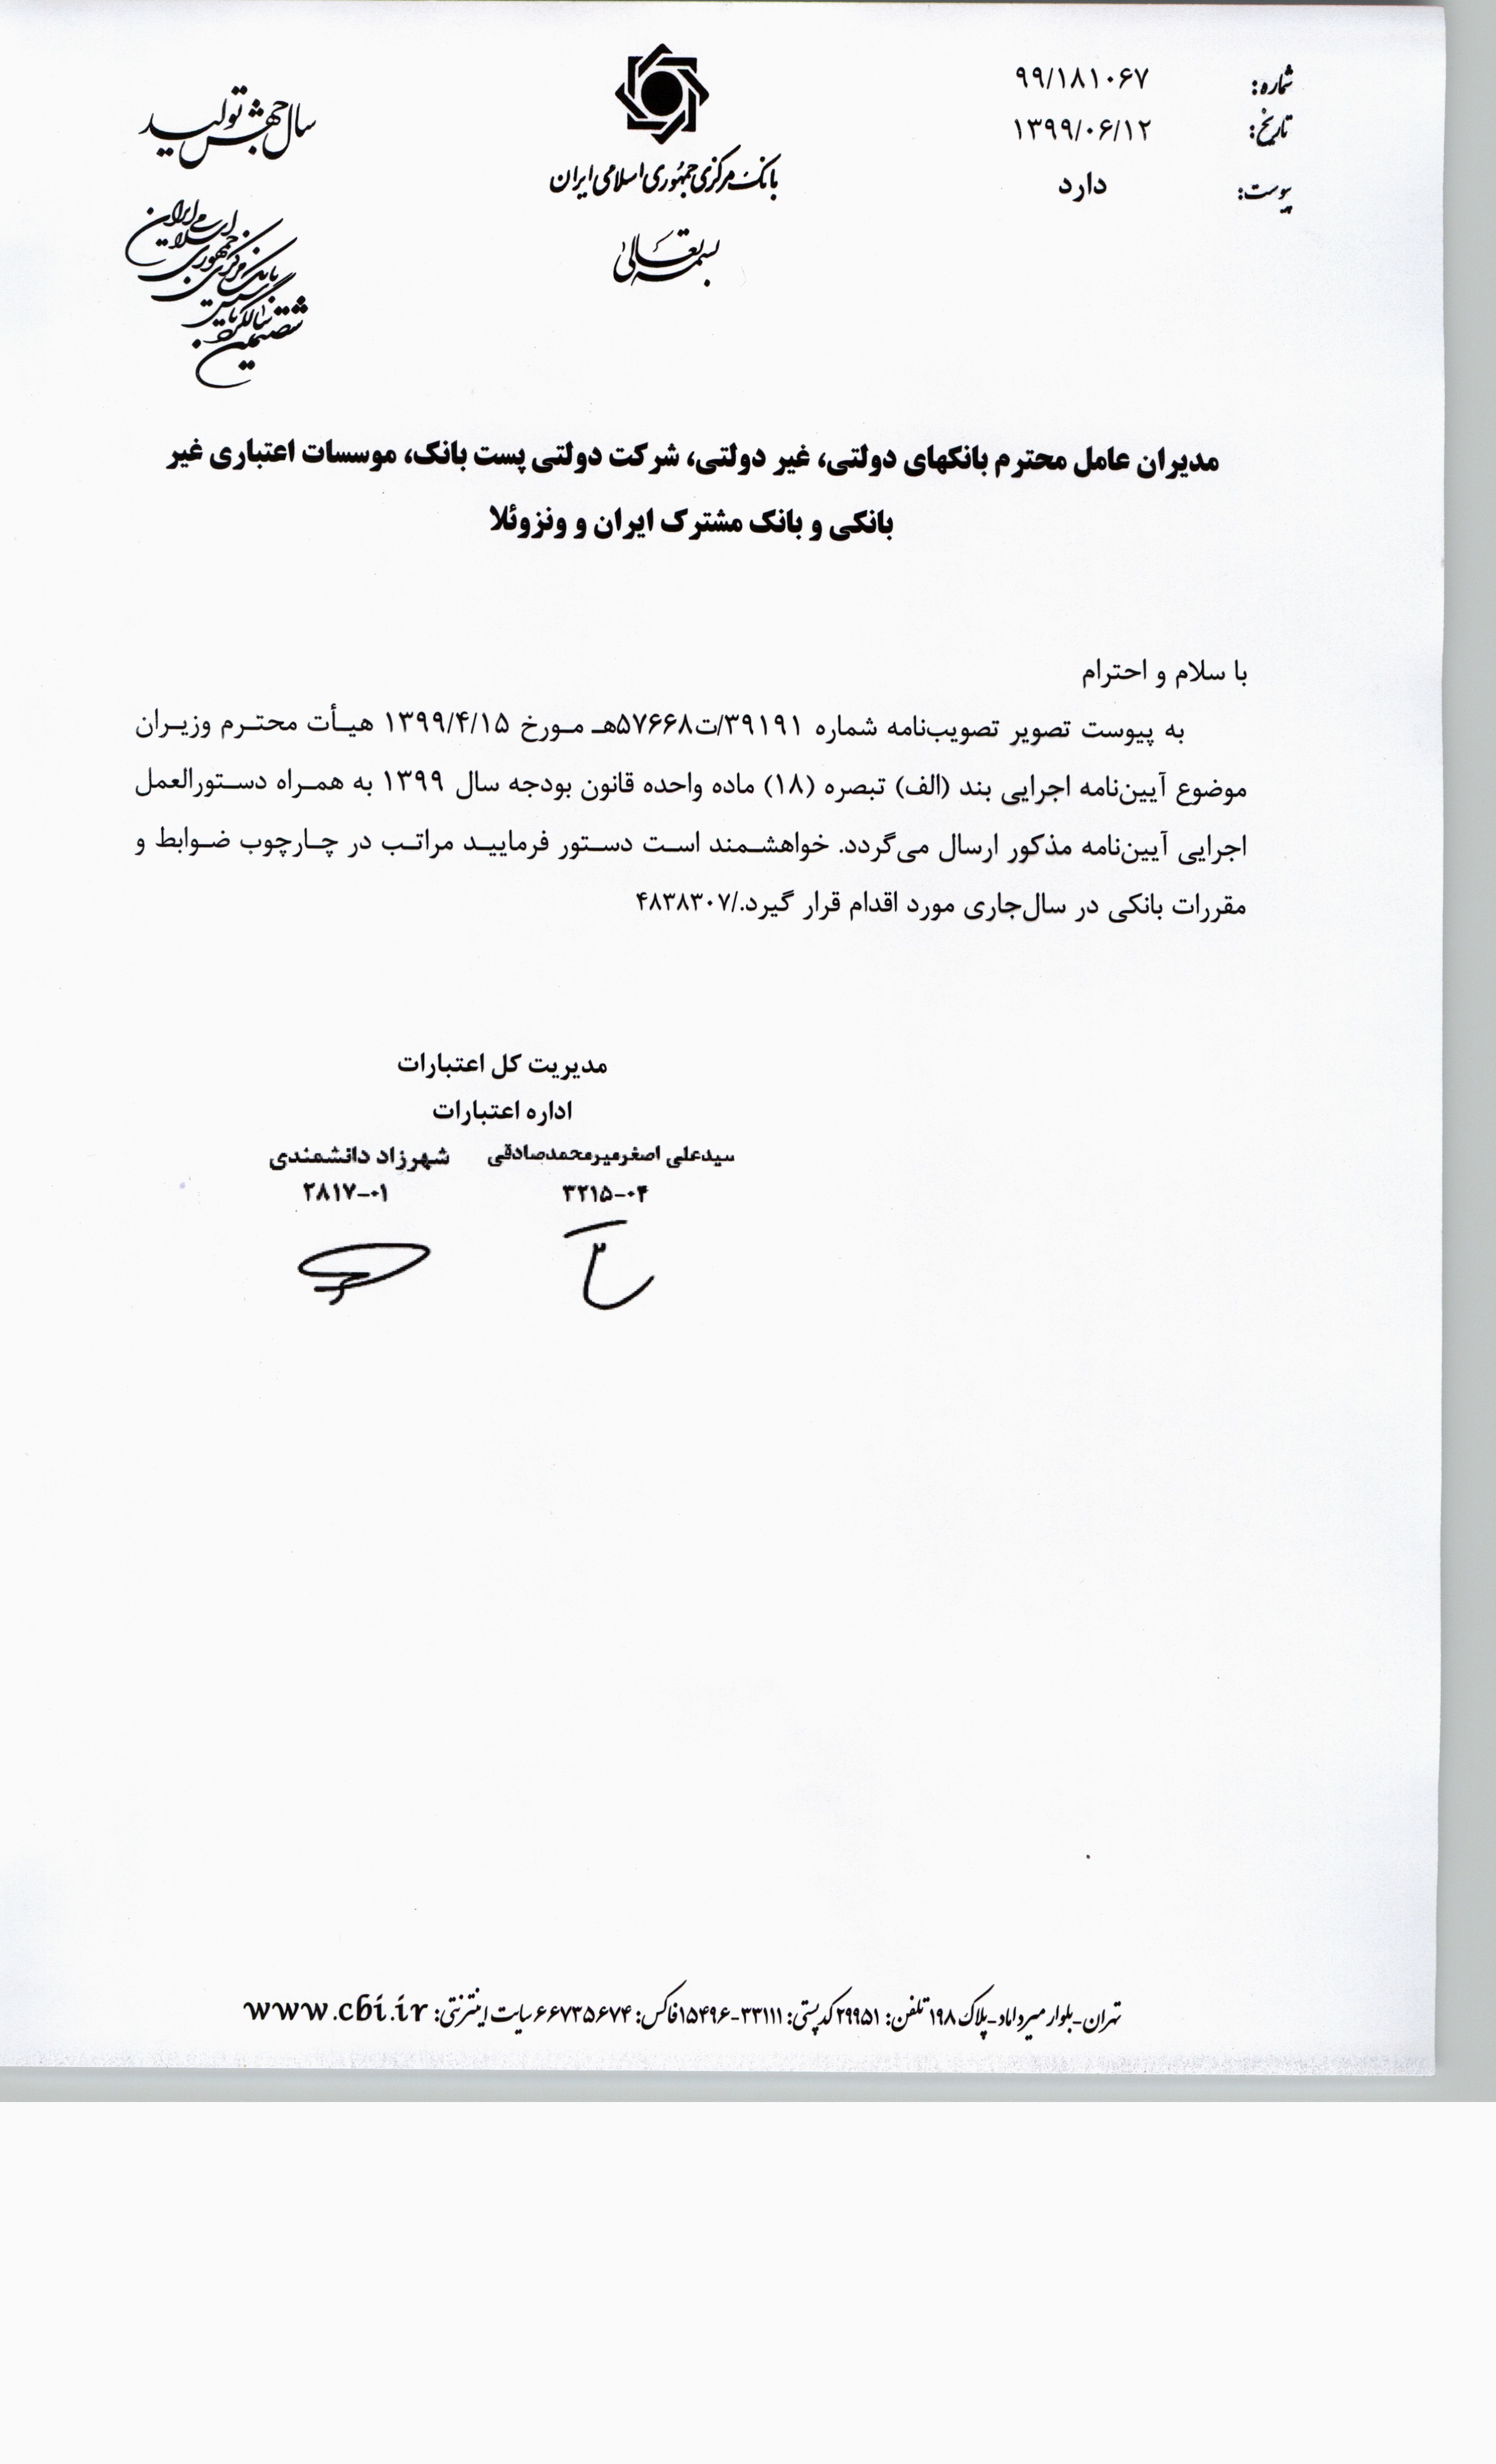 شماره: ۹۹/۱۸۱۰۶۷
تاریخ: ۱۳۹۹/۰۶/۱۲
پیوست: دارد
بانک مرکزی جمهوری اسلامی ایران
بسمه تعالی
سال جهش تولید
شصتمین سالگرد تاسیس بانک مرکزی جمهوری اسلامی ایران
مدیران عامل محترم بانکهای دولتی، غیر دولتی، شرکت دولتی پست بانک، موسسات اعتباری غیر
بانکی و بانک مشترک ایران و ونزوئلا
با سلام و احترام
به پیوست تصویر تصویب‌نامه شماره ۳۹۱۹۱/ت۵۷۶۶۸هـ مـورخ ۱۳۹۹/۴/۱۵ هیـأت محتـرم وزیـران
موضوع آیین‌نامه اجرایی بند (الف) تبصره (۱۸) ماده واحده قانون بودجه سال ۱۳۹۹ به همـراه دستـورالعمل
اجرایی آیین‌نامه مذکور ارسال می‌گردد. خواهشـمند اسـت دسـتور فرماییـد مراتـب در چـارچوب ضـوابط و
مقررات بانکی در سال‌جاری مورد اقدام قرار گیرد./۴۸۳۸۳۰۷
مدیریت کل اعتبارات
اداره اعتبارات
سیدعلی اصغرمیرمحمدصادقی شهرزاد دانشمندی
۳۲۱۵-۰۴ ۲۸۱۷-۰۱
تهران-بلوار میرداماد-پلاک ۱۹۸ تلفن: ۲۹۹۵۱ کدپستی: ۳۳۱۱۱-۱۵۴۹۶ فاکس: ۶۶۷۳۵۶۷۴ سایت اینترنتی: www.cbi.ir